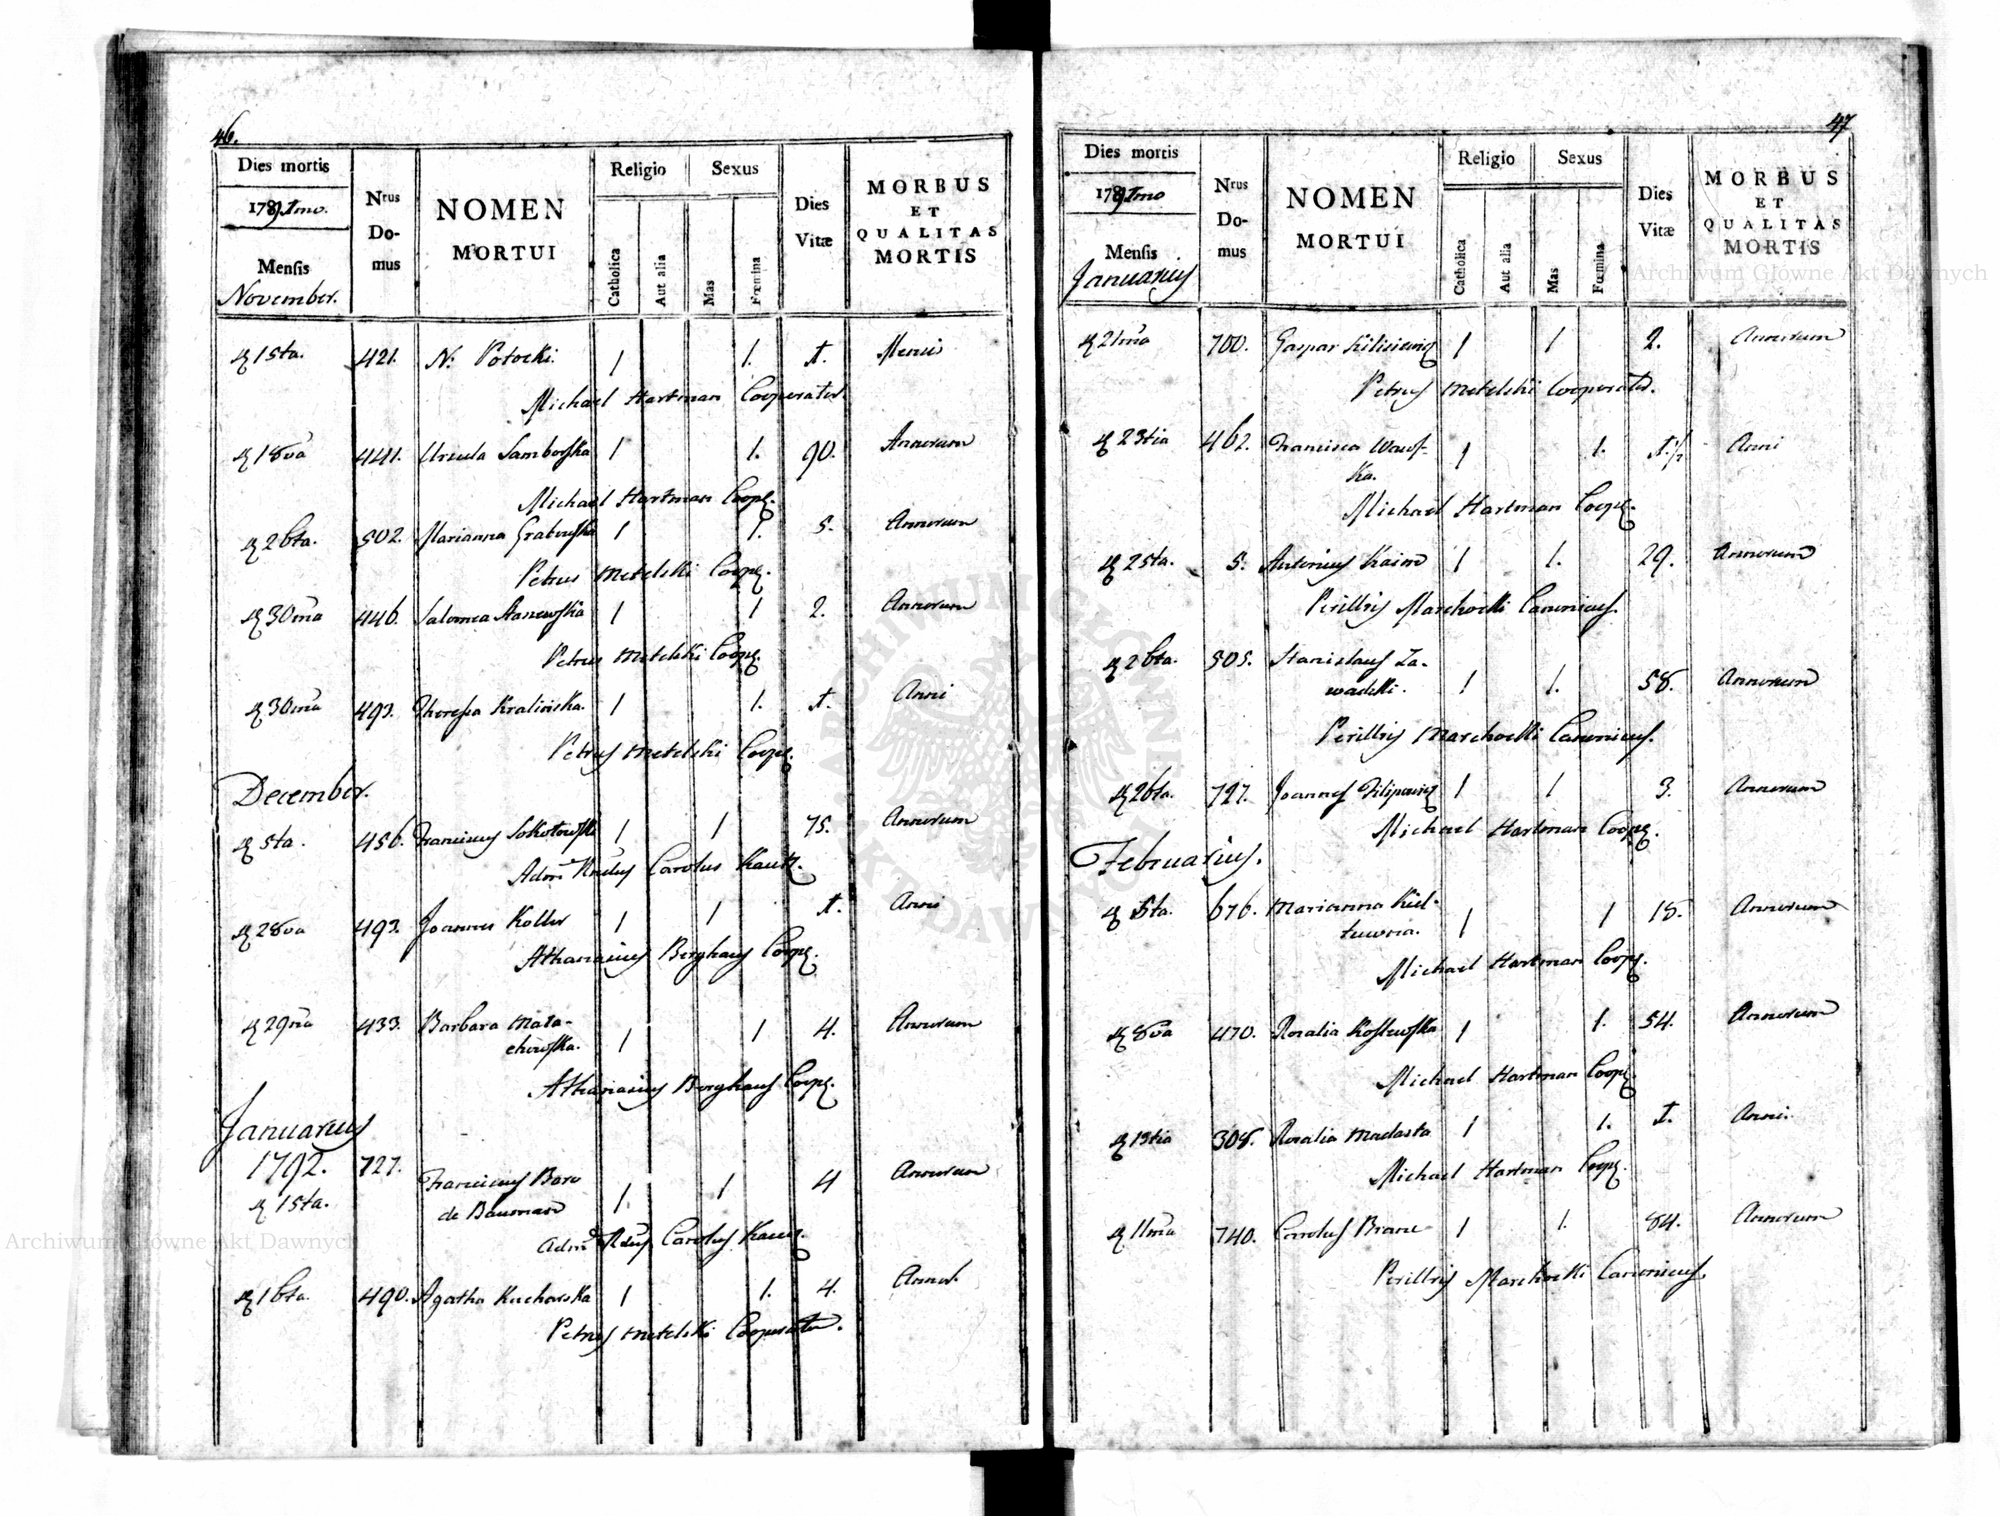 46.
Dies mortis
1791mo.
Mensis
November.
Nrus Do-mus
NOMEN MORTUI
Religio
Catholica
Aut alia
Sexus
Mas
Fœmina
Dies Vitæ
MORBUS ET QUALITAS MORTIS
15ta. 421. N. Potocki. 1 1. 1. Mensis
Michael Hartman Cooperator.
18va 441. Ursula Samborska 1 1. 90. Annorum
Michael Hartman Coop.
26ta. 502. Marianna Grabowska 1 1. 5. Annorum
Petrus Metelski Coop.
30ma 446. Salomea 1 1 2. Annorum
Petrus Metelski Coop.
30ma 493. Theresia Kralinska. 1 1. 1. Anni
Petrus Metelski Coop.
December.
5ta. 456. Franciscus Sokołowski 1 1 75. Annorum
Carolus Kautz.
28va 493. Joannes Koller 1 1 1. Anni
Athanasius Berghaus Coop.
29na 433. Barbara Mała-
chowska. 1 1 4. Annorum
Athanasius Berghaus Coop.
Januarius
1792. 727. Franciscus Baro
15ta. de Bauman 1. 1 4 Annorum
Carolus Kautz.
16ta. 490. Agatha Kucharska 1 1. 4. Annor.
Petrus Metelski Cooperator.
47
Dies mortis
1791mo
Mensis
Januarius
Nrus Do-mus
NOMEN MORTUI
Religio
Catholica
Aut alia
Sexus
Mas
Fœmina
Dies Vitæ
MORBUS ET QUALITAS MORTIS
21ma 700. Gaspar 1 1 2. Annorum
Petrus Metelski Cooperator.
23tia 462. Francisca Wąws-
ka. 1 1. 1.1/2 Anni
Michael Hartman Coop.
25ta. 5. Antonius Kaim 1 1. 29. Annorum
Perillris Marchocki Canonicus.
26ta. 505. Stanislaus Za-
wadzki. 1 1. 58. Annorum
Perillris Marchocki Canonicus.
26ta. 727. Joannes Filipowicz 1 1 3. Annorum
Michael Hartman Coop.
Februarius.
5ta. 676. Marianna Kieł-
1 1 18. Annorum
Michael Hartman Coop.
8va 470. Rosalia Kossewska 1 1. 54. Annorum
Michael Hartman Coop.
13tia 308. Rosalia 1 1. 1. Anni.
Michael Hartman Coop.
11ma 740. Carolus 1 1. 84. Annorum
Perillris Marchocki Canonicus.
Archiwum Główne Akt Dawnych
Archiwum Główne Akt Dawnych
ARCHIWUM GŁÓWNE AKT DAWNYCH